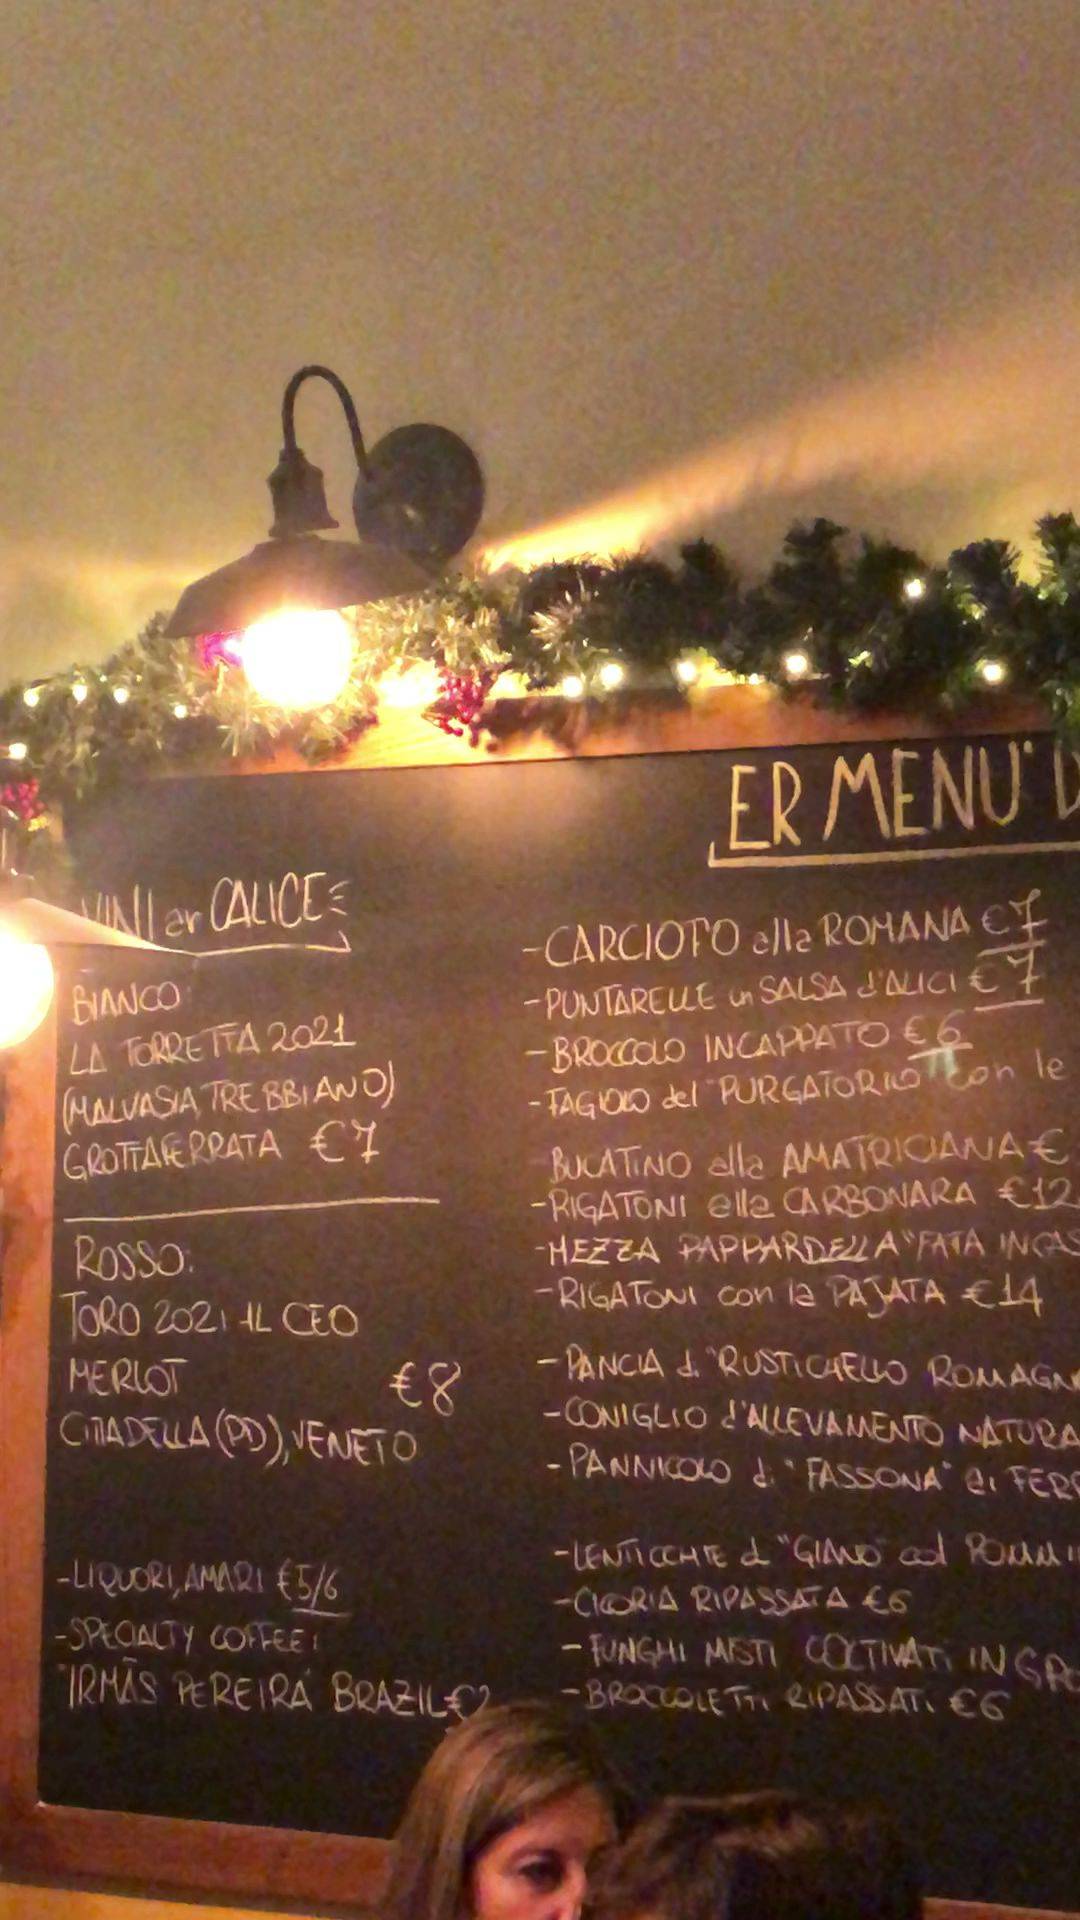 ER MENU'
VINI er CALICE
BIANCO:
LA TORRETTA 2021
(MALVASIA, TREBBIANO)
GROTTAFERRATA €7
ROSSO:
TORO 2021 IL CEO
MERLOT €8
CITTADELLA (PD), VENETO
-LIQUORI, AMARI €5/6
-SPECIALTY COFFEE:
"IRMÃS PEREIRA" BRAZIL €2
-CARCIOFO alla ROMANA €7
-PUNTARELLE in SALSA d'ALICI €7
-BROCCOLO INCAPPATO €6
-FAGIOLO del "PURGATORIO" con le
BUCATINO alla AMATRICIANA €
-RIGATONI alla CARBONARA €12
-MEZZA PAPPARDELLA "FATA INCAS
-RIGATONI con la PAJATA €14
-PANCIA di "RUSTICHELLO ROMAGN
-CONIGLIO d'ALLEVAMENTO NATURA
-PANNICOLO di "FASSONA" ai FER
-LENTICCHIE di "GIANO" col POMM
-CICORIA RIPASSATA €6
-FUNGHI MISTI COLTIVATI IN GRO
-BROCCOLETTI RIPASSATI €6